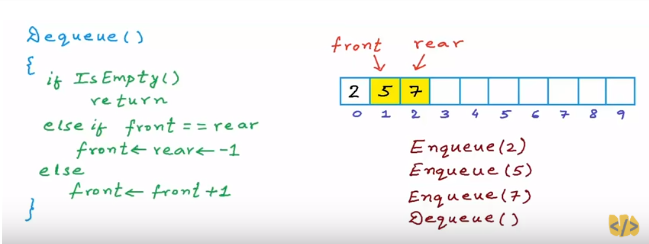 Dequeue()
{
if IsEmpty()
return
else if front == rear
front ← rear ← -1
else
front ← front +1
}
front rear
2 5 7
0 1 2 3 4 5 6 7 8 9
Enqueue(2)
Enqueue(5)
Enqueue(7)
Dequeue()
</>